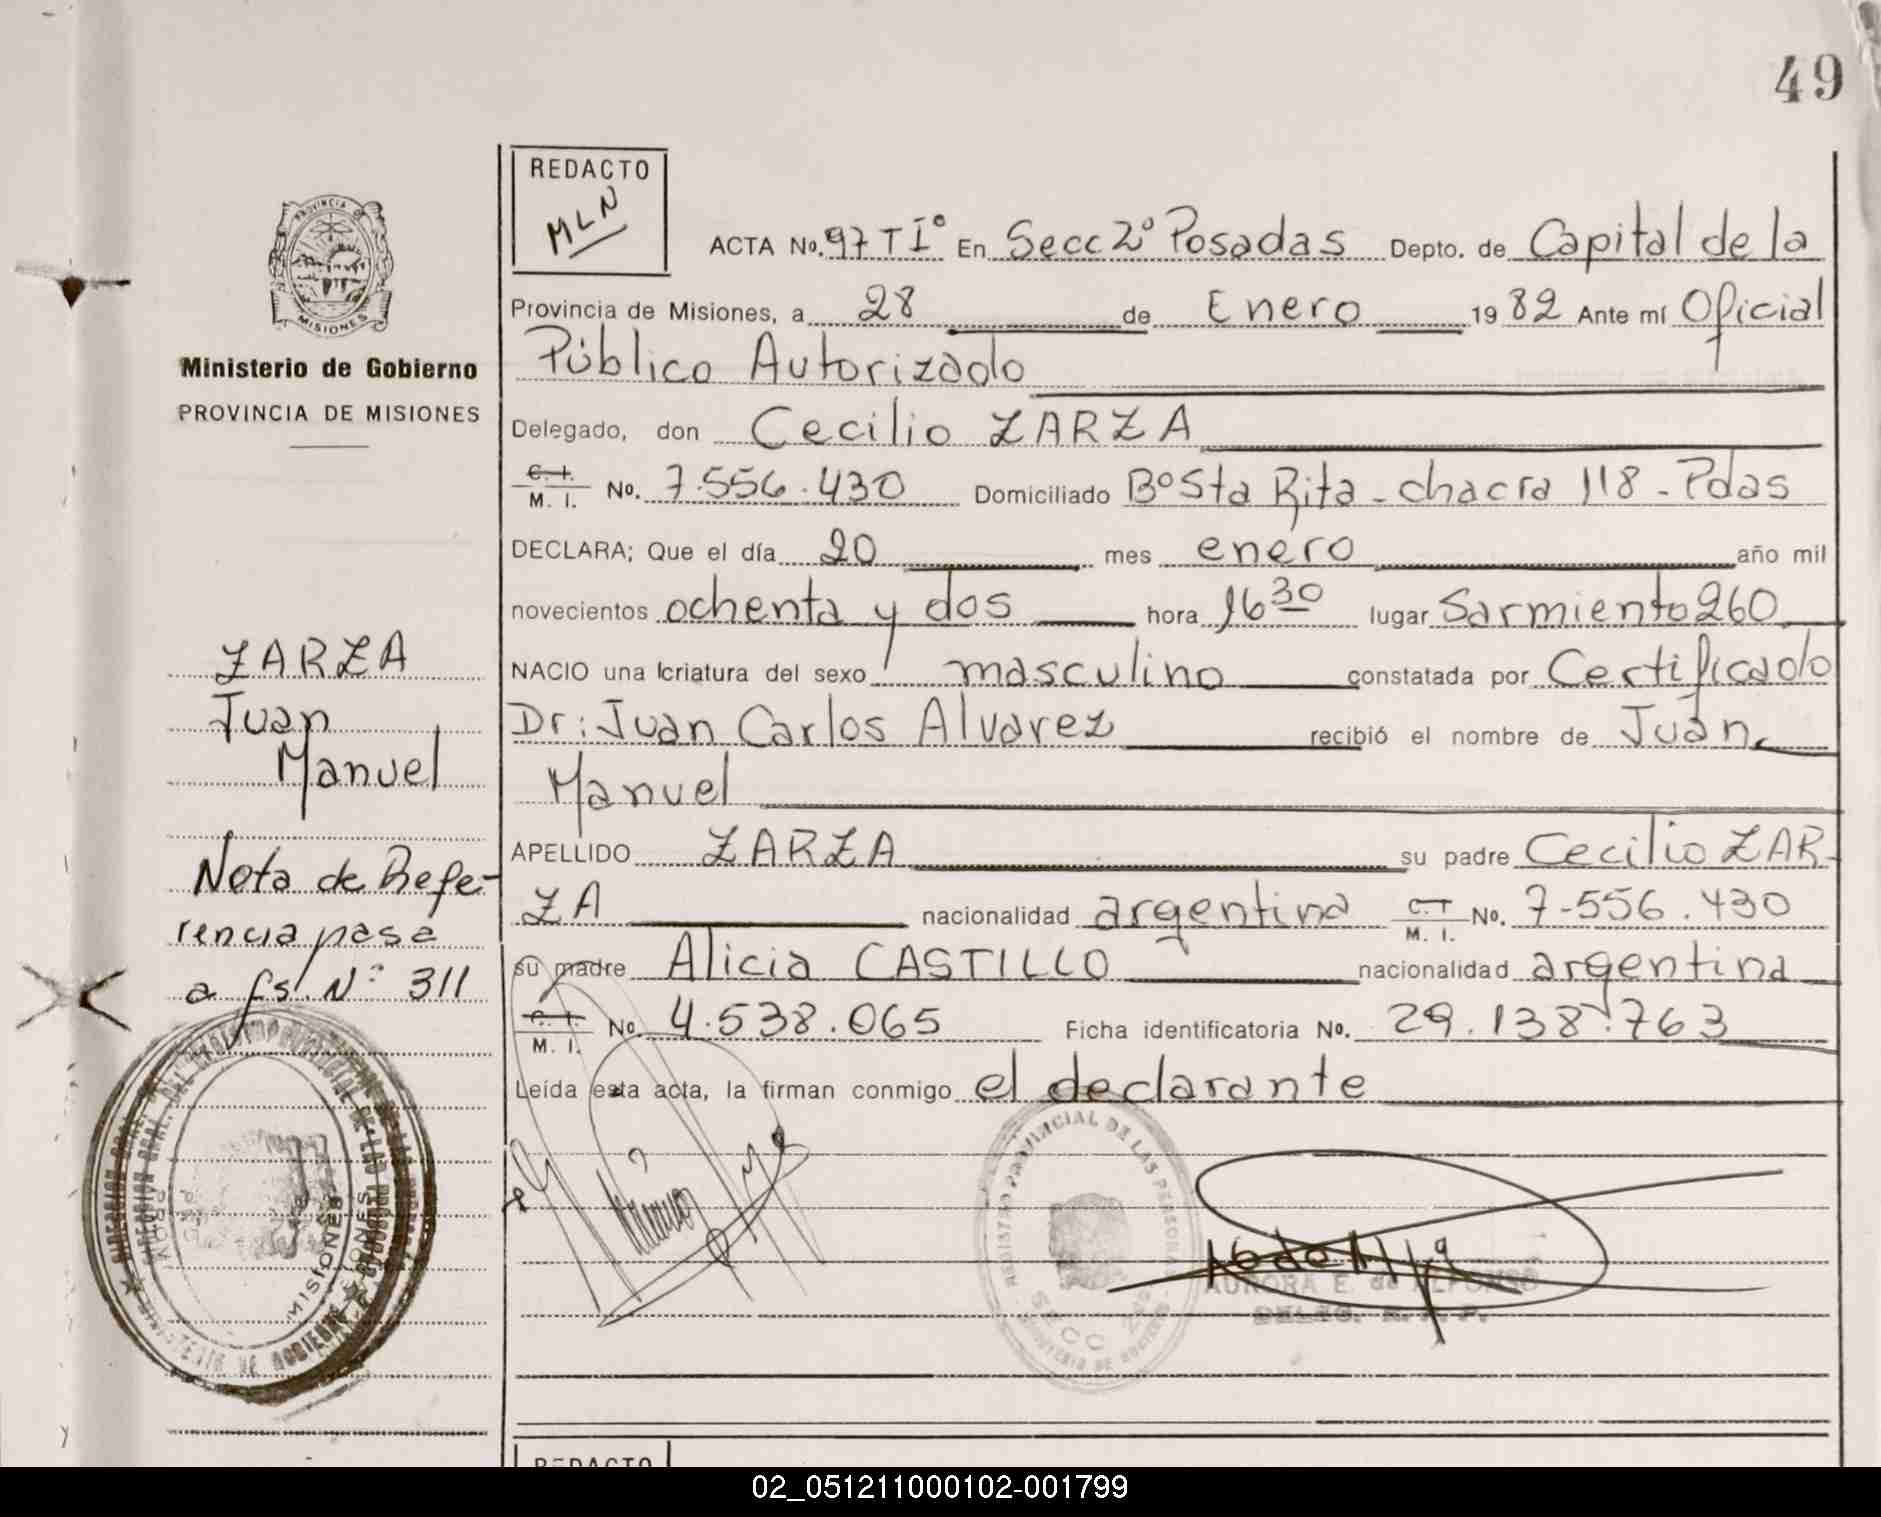 49
REDACTO
MLN
PROVINCIA DE
MISIONES
Ministerio de Gobierno
PROVINCIA DE MISIONES
ACTA No. 97 T Iº En Secc 2º Posadas Depto. de Capital de la
Provincia de Misiones, a 28 de Enero 1982 Ante mí Oficial
Público Autorizado
Delegado, don Cecilio ZARZA
C. I.
M. I. No. 7.556.430 Domiciliado Bº Sta Rita - chacra 118 - Pdas
DECLARA; Que el día 20 mes enero año mil
novecientos ochenta y dos hora 16 30 lugar Sarmiento 260
NACIO una criatura del sexo masculino constatada por Certificado
Dr: Juan Carlos Alvarez recibió el nombre de Juan
Manuel
APELLIDO ZARZA su padre Cecilio ZAR-
ZA nacionalidad argentina C. I.
M. I. No. 7-556.430
su madre Alicia CASTILLO nacionalidad argentina
C. I.
M. I. No. 4.538.065 Ficha identificatoria No. 29.138.763
Leída esta acta, la firman conmigo el declarante
ZARZA
Juan
Manuel
Nota de Refe-
rencia pasa
a fs. Nº 311
MISIONES
REGISTRO PROVINCIAL DE LAS PERSONAS
SECC 2ª
AURORA E. de ALFONSO
DELEG. R. P. P.
REDACTO
02_051211000102-001799